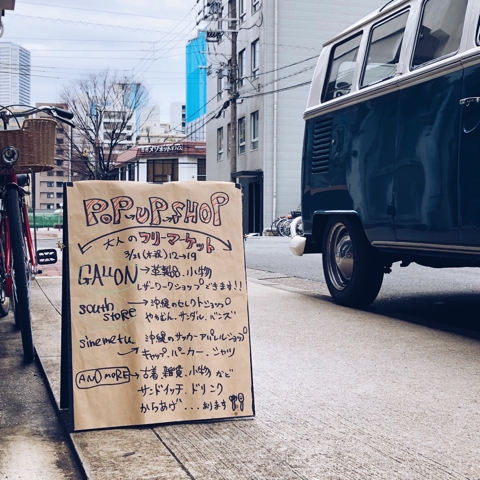 POP-UP-SHOP
大人のフリーマーケット
3/21(木祝) 12→19
GALLON → 革製品、小物
レザーワークショップできます!!
south store → 沖縄のセレクトショップ
やちむん、サンダル、パンズ
sinemetu 沖縄のサッカーアパレルショップ
→ キャップ、パーカー、シャツ
AND MORE → 古着、雑貨、小物など
サンドイッチ、ドリンク
からあげ...あります